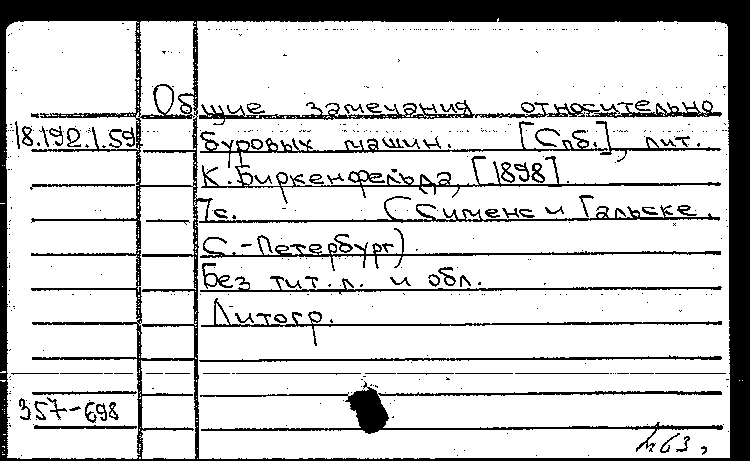 Общие замечания относительно
18.192.1.59 буровых машин. [Спб.], лит.
К. Биркенфельда, [1898].
7с. (Сименс и Гальске.
С.-Петербург)
Без тит. л. и обл.
Литогр.
357-698